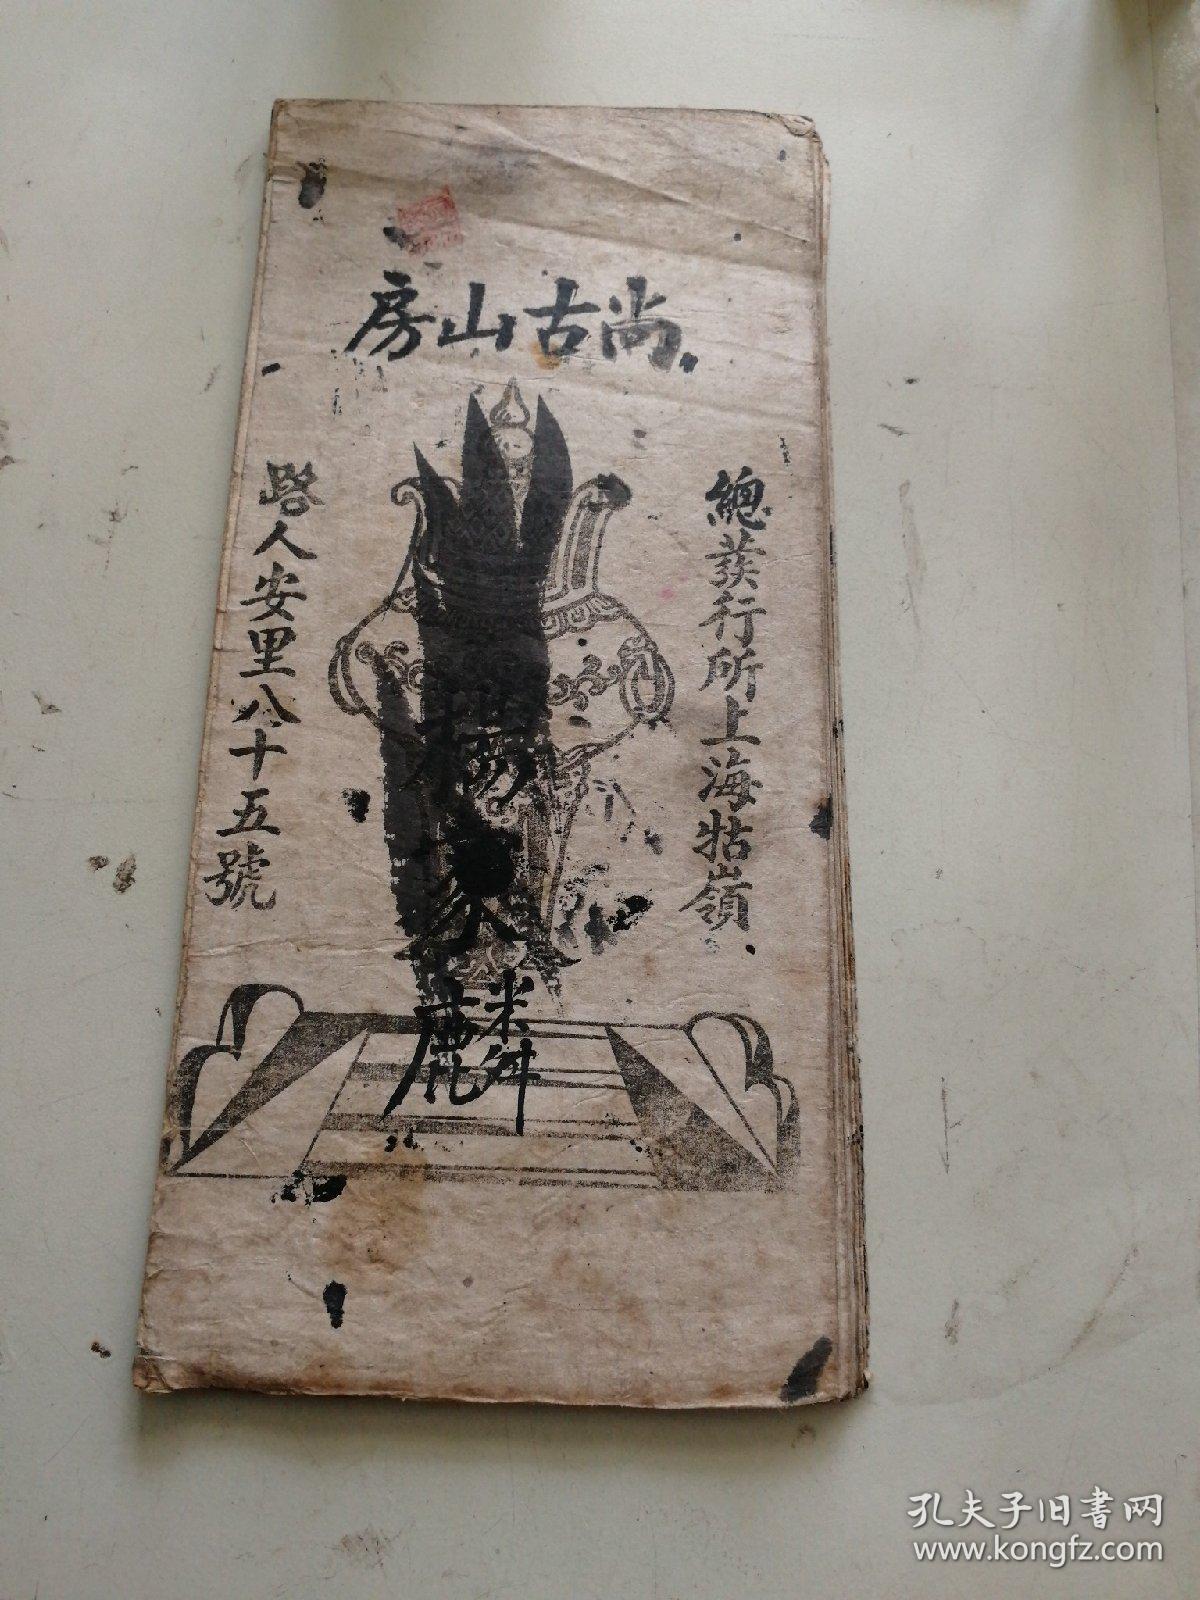 尚古山房
總發行所上海牯嶺
路人安里八十五號
楊家麟
孔夫子旧书网
www.kongfz.com